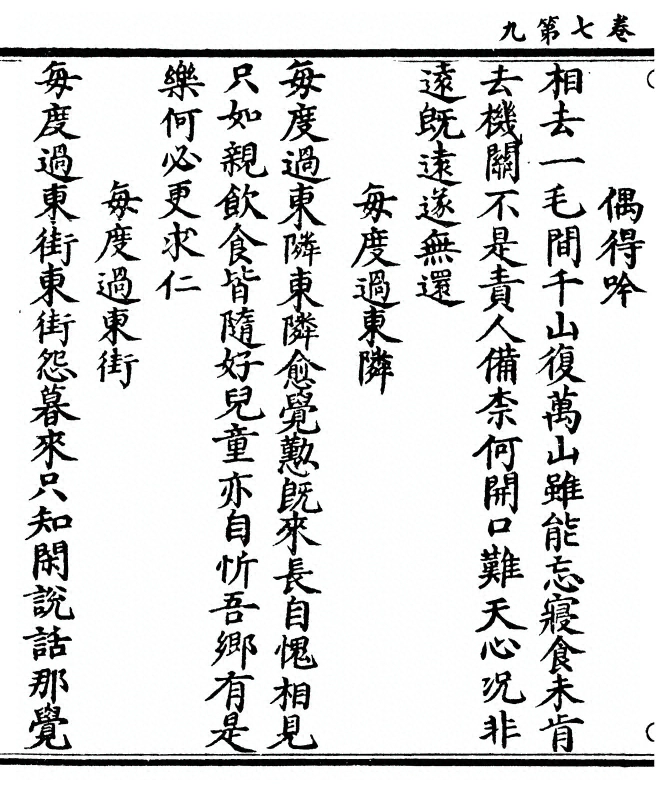 卷七第九
偶得吟
相去一毛間千山復萬山雖能忘寢食未肯
去機關不是責人備柰何開口難天心況非
遠既遠遂無還
每度過東隣
每度過東隣東隣愈覺懃既來長自愧相見
只如親飲食皆隨好兒童亦自忻吾鄉有是
樂何必更求仁
每度過東街
每度過東街東街怨暮來只知閑說話那覺